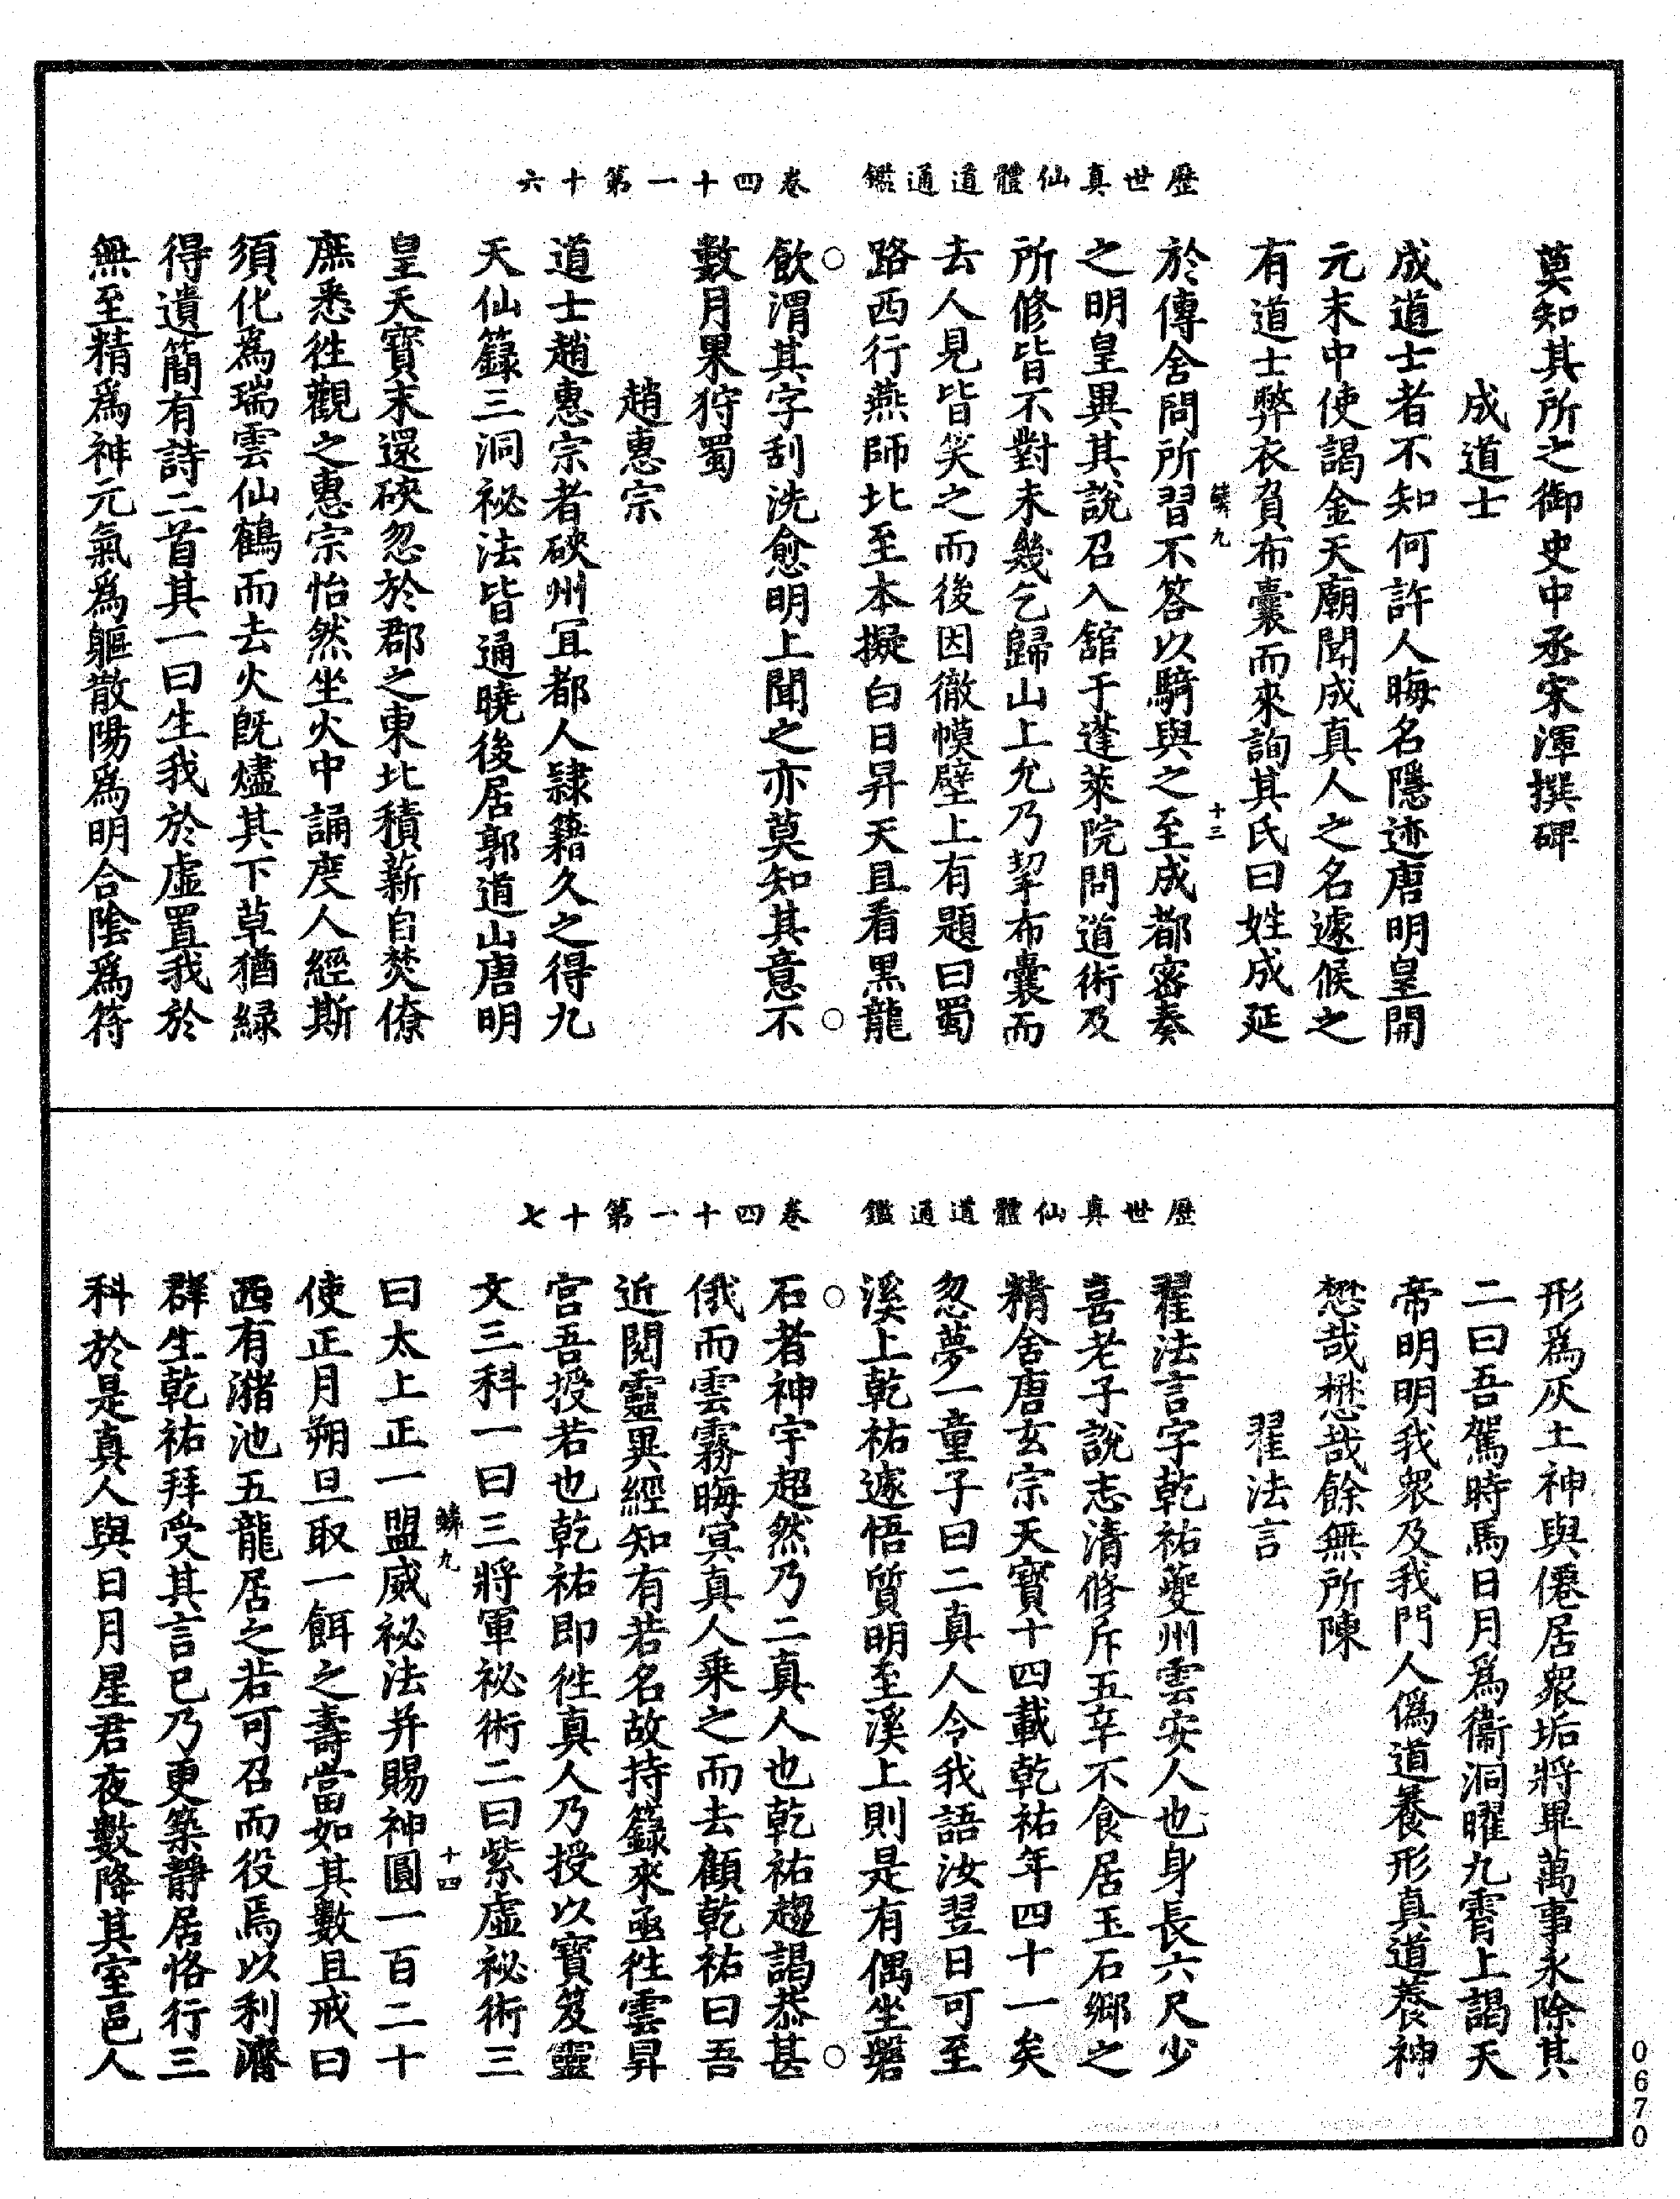 歷世真仙體道通鑑　卷四十一第十六
莫知其所之御史中丞宋渾撰碑
成道士
成道士者不知何許人晦名隱迹唐明皇開
元末中使謁金天廟聞成真人之名遽候之
有道士弊衣負布囊而來詢其氏曰姓成延
鱗九　十三
於傳舍問所習不答以騎與之至成都密奏
之明皇異其說召入舘于蓬萊院問道術及
所修皆不對未幾乞歸山上允乃挈布囊而
去人見皆笑之而後因徹幙壁上有題曰蜀
路西行燕師北至本擬白日昇天且看黑龍
飲渭其字刮洗愈明上聞之亦莫知其意不
數月果狩蜀
趙惠宗
道士趙惠宗者硤州冝都人隸籍久之得九
天仙籙三洞祕法皆通曉後居郭道山唐明
皇天寶末還硤忽於郡之東北積薪自焚僚
庶悉徃觀之惠宗怡然坐火中誦度人經斯
須化為瑞雲仙鶴而去火既燼其下草猶緑
得遺簡有詩二首其一曰生我於虛置我於
無至精爲神元氣爲軀散陽爲明合陰爲符
歷世真仙體道通鑑　卷四十一第十七
形爲灰土神與僊居衆垢將畢萬事永除其
二曰吾駕時馬日月爲衞洞曜九霄上謁天
帝明明我衆及我門人僞道養形真道養神
懋哉懋哉餘無所陳
翟法言
翟法言字乾祐夔州雲安人也身長六尺少
喜老子說志清修斥五辛不食居玉石鄉之
精舍唐玄宗天寶十四載乾祐年四十一矣
忽夢一童子曰二真人令我語汝翌日可至
溪上乾祐遽悟質明至溪上則是有偶坐磐
石者神宇超然乃二真人也乾祐趨謁恭甚
俄而雲霧晦冥真人乘之而去顧乾祐曰吾
近閲靈異經知有若名故持籙來亟徃雲昇
宮吾授若也乾祐即徃真人乃授以寶笈靈
文三科一曰三將軍祕術二曰紫虛祕術三
鱗九　十四
曰太上正一盟威祕法并賜神圓一百二十
使正月朔旦取一餌之壽當如其數且戒曰
西有瀦池五龍居之若可召而役焉以利濟
群生乾祐拜受其言已乃更築靜居恪行三
科於是真人與日月星君夜數降其室邑人
0670